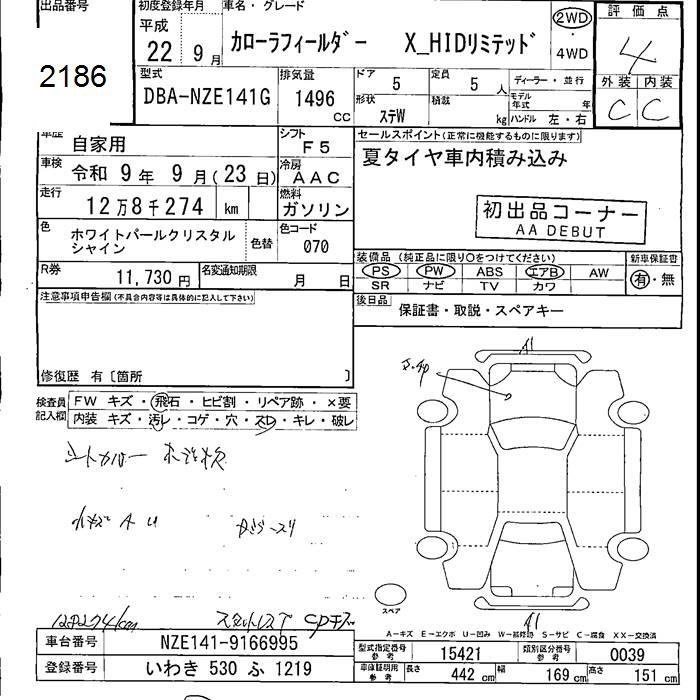 出品番号
2186
初度登録年月
平成
22 9月
車名・グレード
カローラフィールダー X_HIDリミテッド
2WD
・
4WD
評価点
4
外装 内装
C C
型式
DBA-NZE141G
排気量
1496
CC
ドア
5
定員
5人
形状
ステW
積載
kg
ディーラー・並行
モデル年式 年
ハンドル 左・右
車歴
自家用
シフト
F5
車検
令和 9年 9月(23日)
冷房
AAC
走行
12万8千274 km
燃料
ガソリン
色
ホワイトパールクリスタル
シャイン
色替
色コード
070
R券
11,730円
名変通知期限
月 日
セールスポイント(正常に機能するものに限ります)
夏タイヤ車内積み込み
初出品コーナー
AA DEBUT
装備品 (純正品に限り○をつけてください)
PS PW ABS エアB AW
SR ナビ TV カワ
新車保証書
有・無
後日品
保証書・取説・スペアキー
注意事項申告欄(不具合内容等は具体的に記入して下さい)
修復歴 有〔箇所 〕
検査員
記入欄
FW キズ・飛石・ヒビ割・リペア跡・×要
内装 キズ・汚レ・コゲ・穴・スレ・キレ・破レ
シートカバー
A U
A1
A1
スペア
A-キズ E-エクボ U-凹み W-補修跡 S-サビ C-腐食 XX-交換済
128274km
車台番号
NZE141-9166995
登録番号
いわき 530 ふ 1219
型式指定番号
参考
15421
類別区分番号
参考
0039
車庫証明用
参考
長さ 442 cm 幅 169 cm 高さ 151 cm